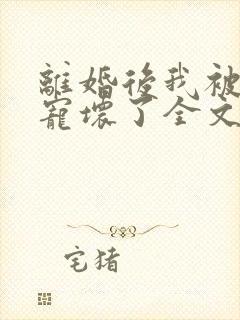 離婚後我被
寵壞了全文
宅猪